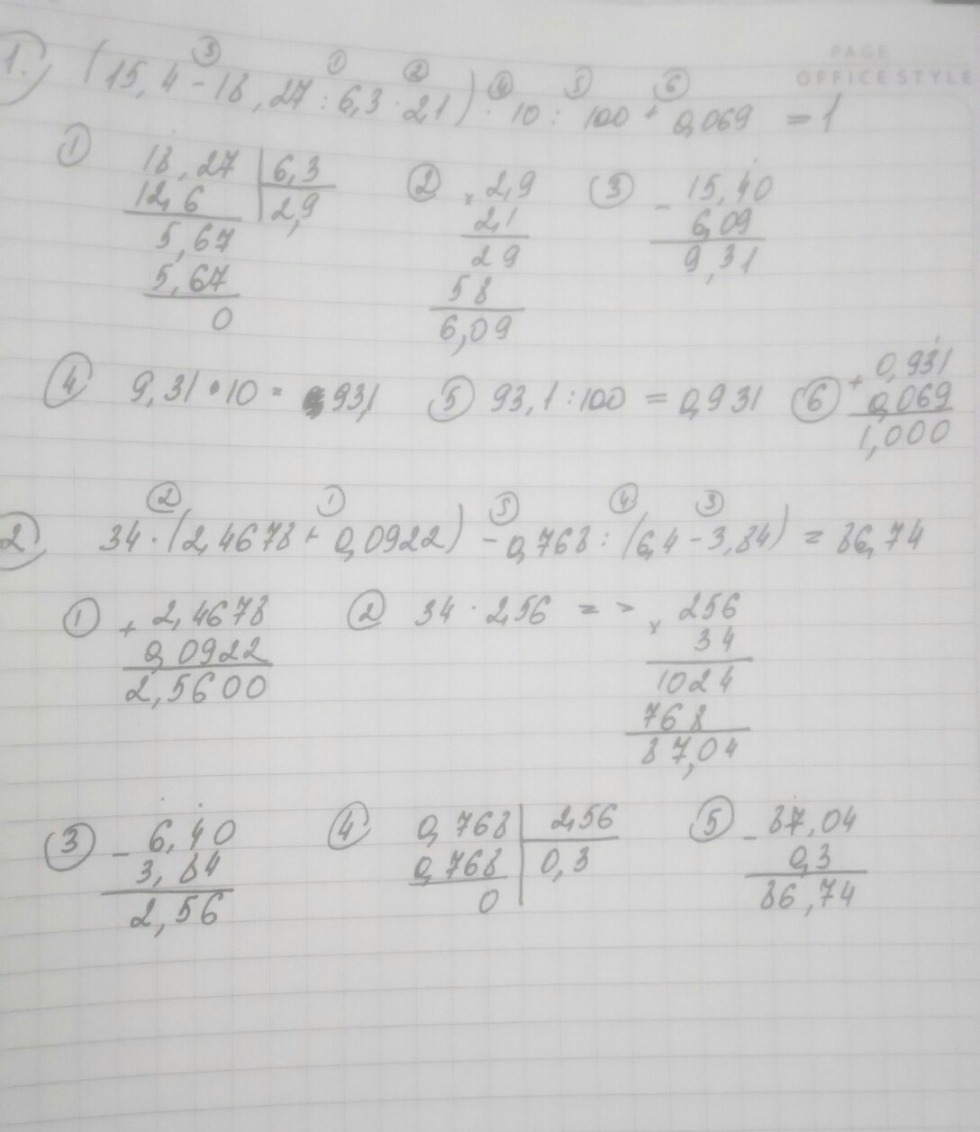 PAGE
OFFICE STYLE
③ ① ② ④ ⑤ ⑥
1. (15,4 - 18,27 : 6,3 · 2,1) · 10 : 100 + 0,069 = 1
① 18,27 6,3 ② × 2,9 ③ - 15,40
12,6 2,9 2,1 6,09
5,67 29 9,31
5,67 58
0 6,09
④ 9,31 · 10 = 93,1 ⑤ 93,1 : 100 = 0,931 ⑥ + 0,931
0,069
1,000
② ① ⑤ ④ ③
2. 34 · (2,4678 + 0,0922) - 0,768 : (6,4 - 3,84) = 86,74
① + 2,4678 ② 34 · 2,56 => × 256
0,0922 34
2,5600 1024
768
87,04
③ - 6,40 ④ 0,768 2,56 ⑤ - 87,04
3,84 0,768 0,3 0,3
2,56 0 86,74